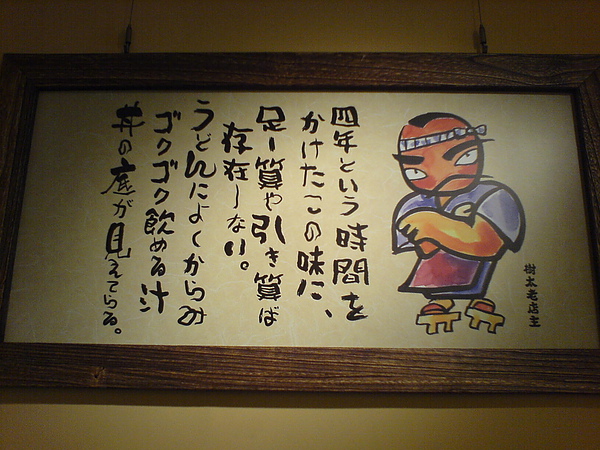 四年という時間を
かけたこの味に、
足し算や引き算ば
存在しない。
うどんによくからみ
ゴクゴク飲める汁
丼の底が見えてらる。
樹太老店主